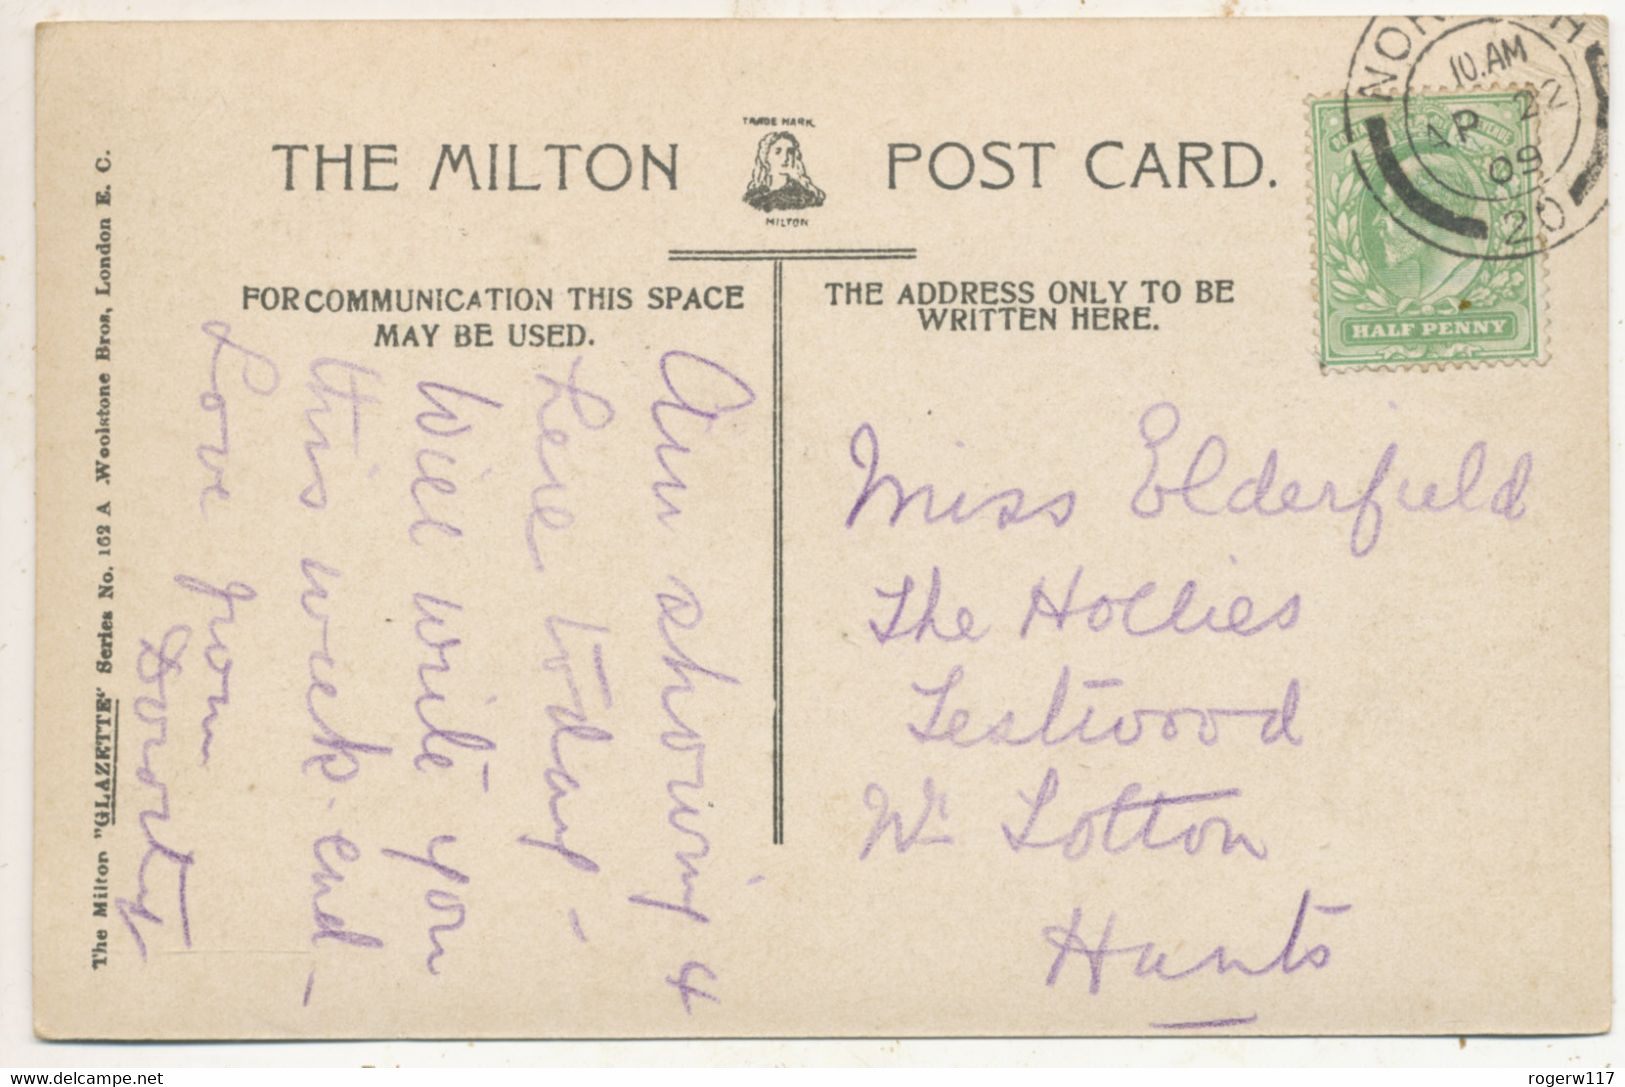 THE MILTON POST CARD.
TRADE MARK
MILTON
FOR COMMUNICATION THIS SPACE
MAY BE USED.
THE ADDRESS ONLY TO BE
WRITTEN HERE.
10.AM
AP 22
09
20
HALF PENNY
Am showing 4
here today -
Will write you
this week-end -
Love from
Dorothy
Miss Elderfield
The Hollies
Testwood
Nr Totton
Hants
The Milton "GLAZETTE" Series No. 162 A Woolstone Bros, London E. C.
rogerw117